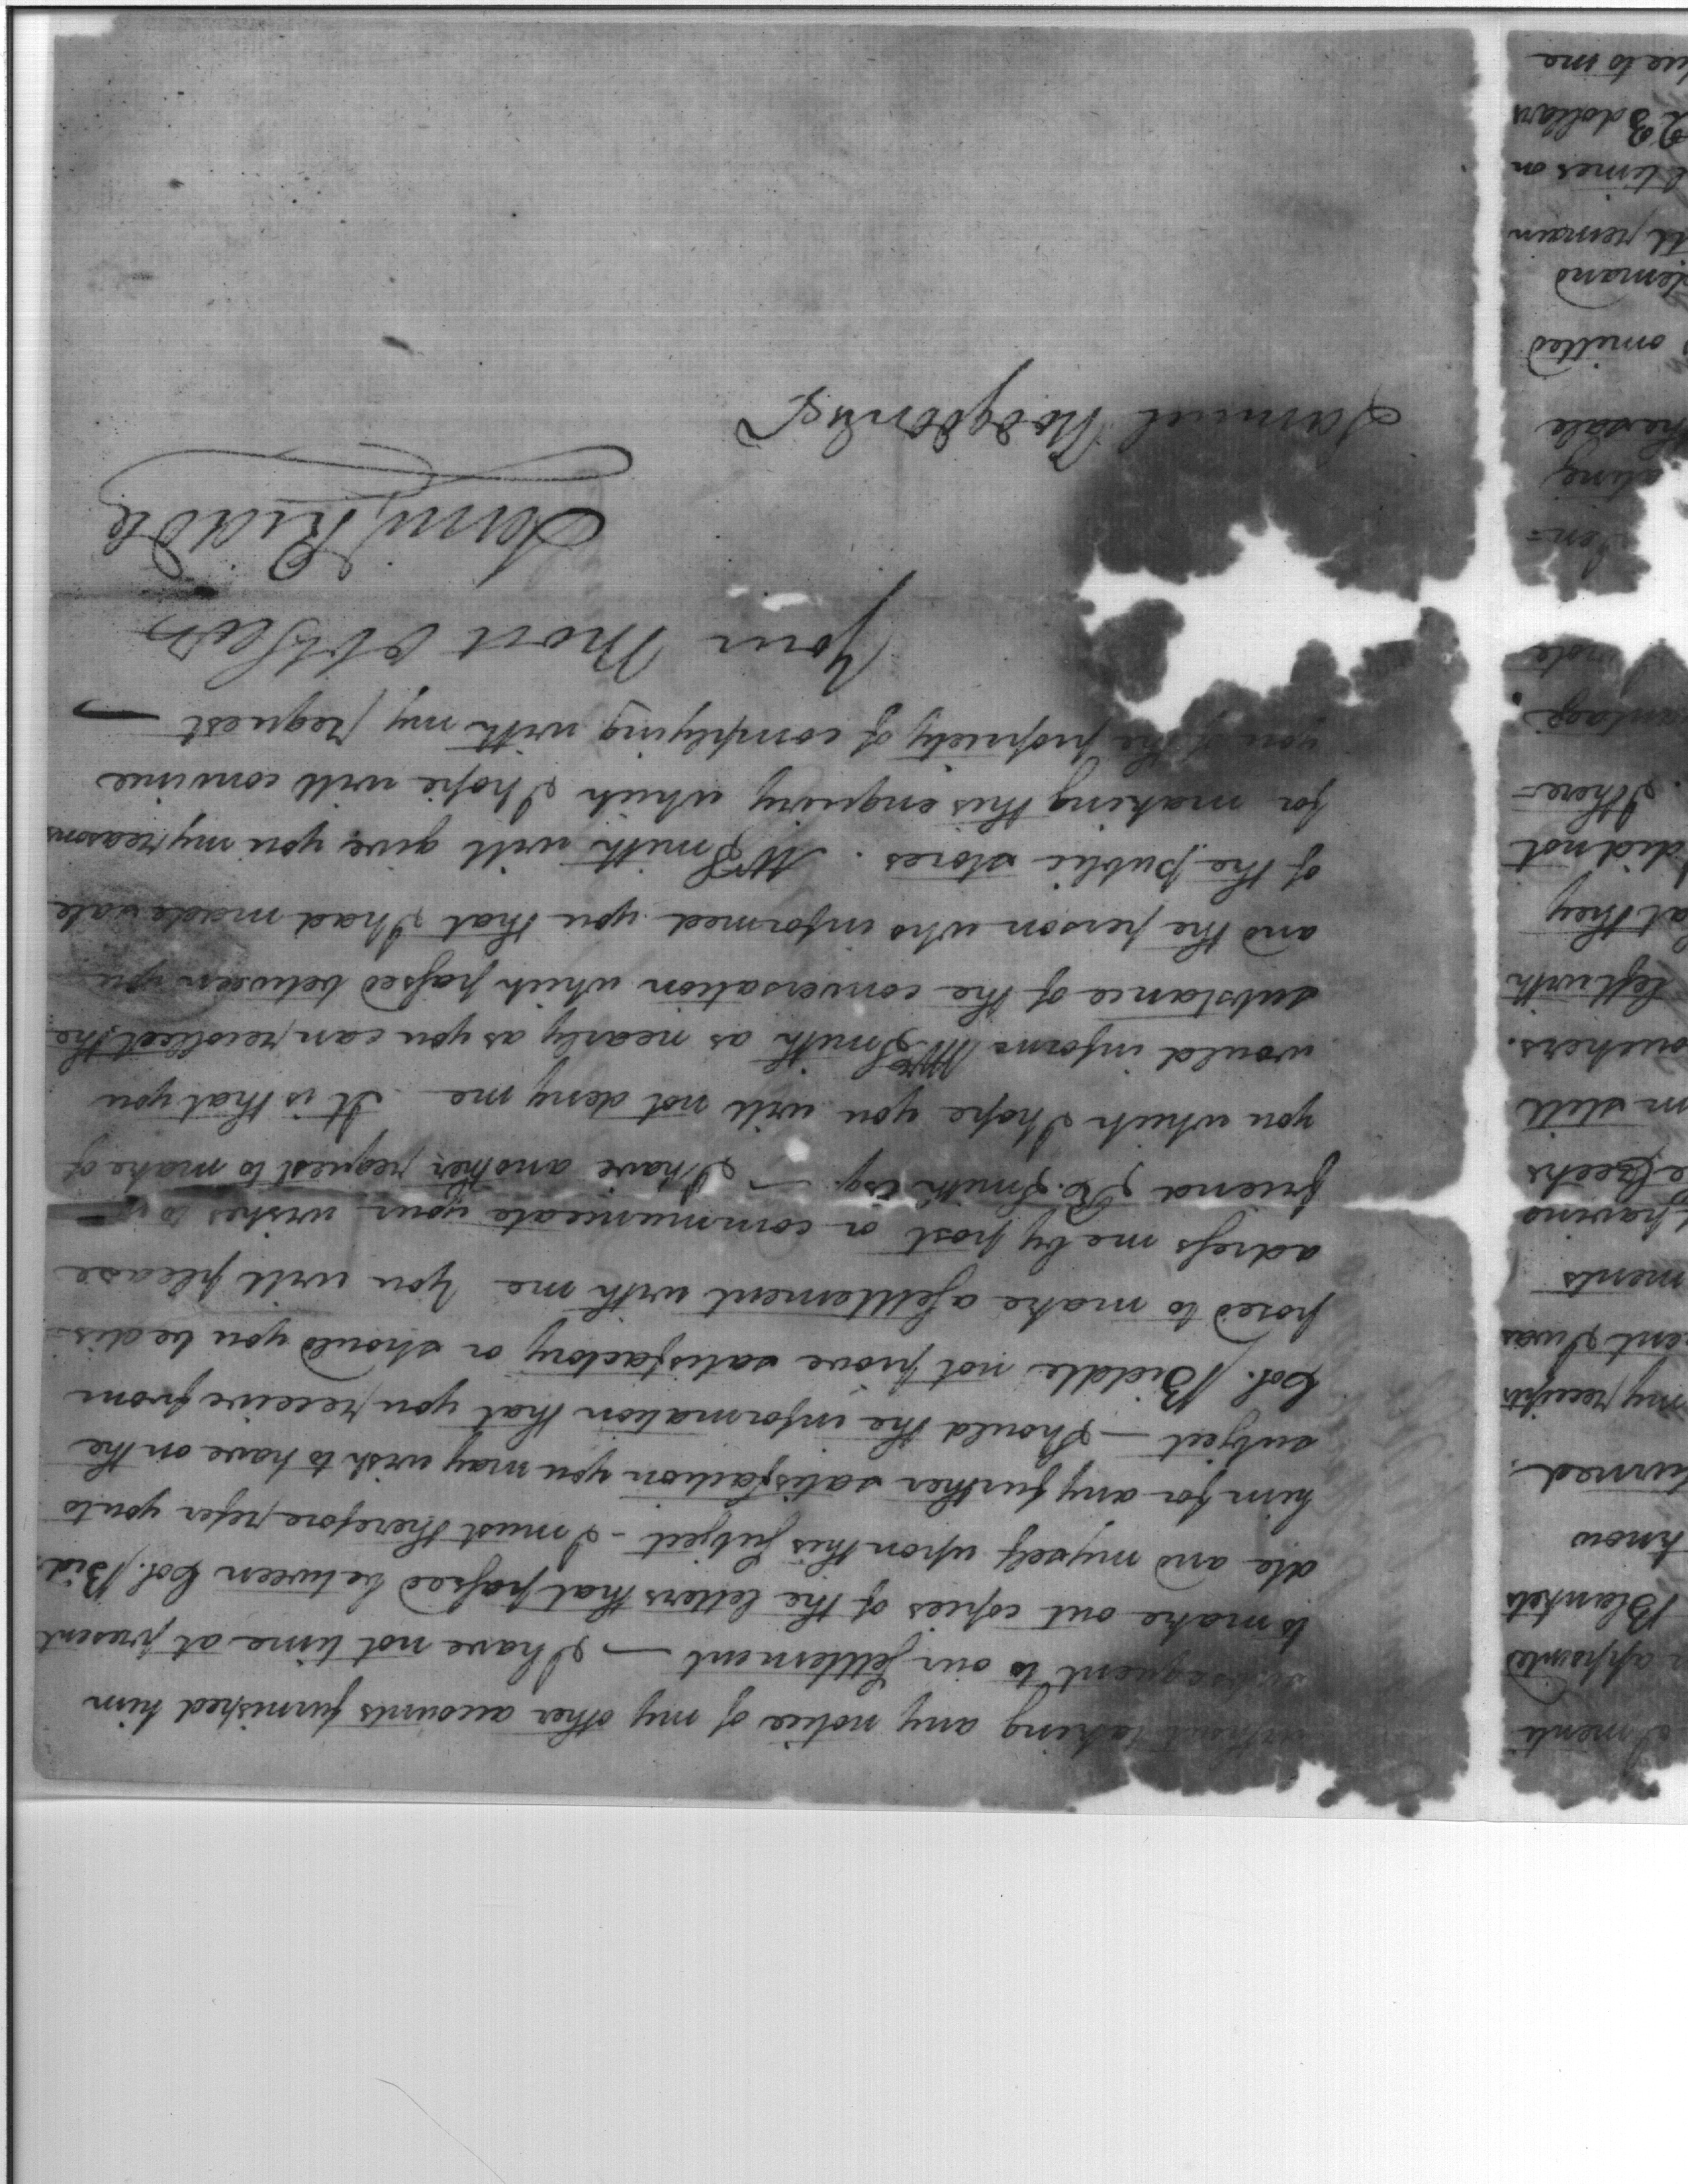 without taking any notice of my other accounts furnished him
subsequent to our settlement — I have not time at present
to make out copies of the letters that passed between Col. Bid
dle and myself upon this subject - I must therefore refer you to
him for any further satisfaction you may wish to have on the
subject — Should the information that you receive from
Col. Biddle not prove satisfactory or should you be dis-
posed to make a settlement with me you will please
adress me by post or communicate your wishes to
friend Smith Esq. — I have another request to make of
you which I hope you will not deny me It is that you
would inform Mr Smith as nearly as you can recollect the
substance of the conversation which passed between you
and the person who informed you that I had made sale
of the public stores. Mr Smith will give you my reasons
for making this enquiry which I hope will convince
you of the propriety of complying with my request —
Your Most Obt Ser
Samuel Hodgdon Esqr
ments
appointed
Blankets
know
turned.
my receipts
ent I was
ments
having
effects
m still
ouchers.
left with
at they
did not
. There-
antage
note
den=
ating
the sale
omitted
demand
ll remain
t times on
23 dollars
due to me